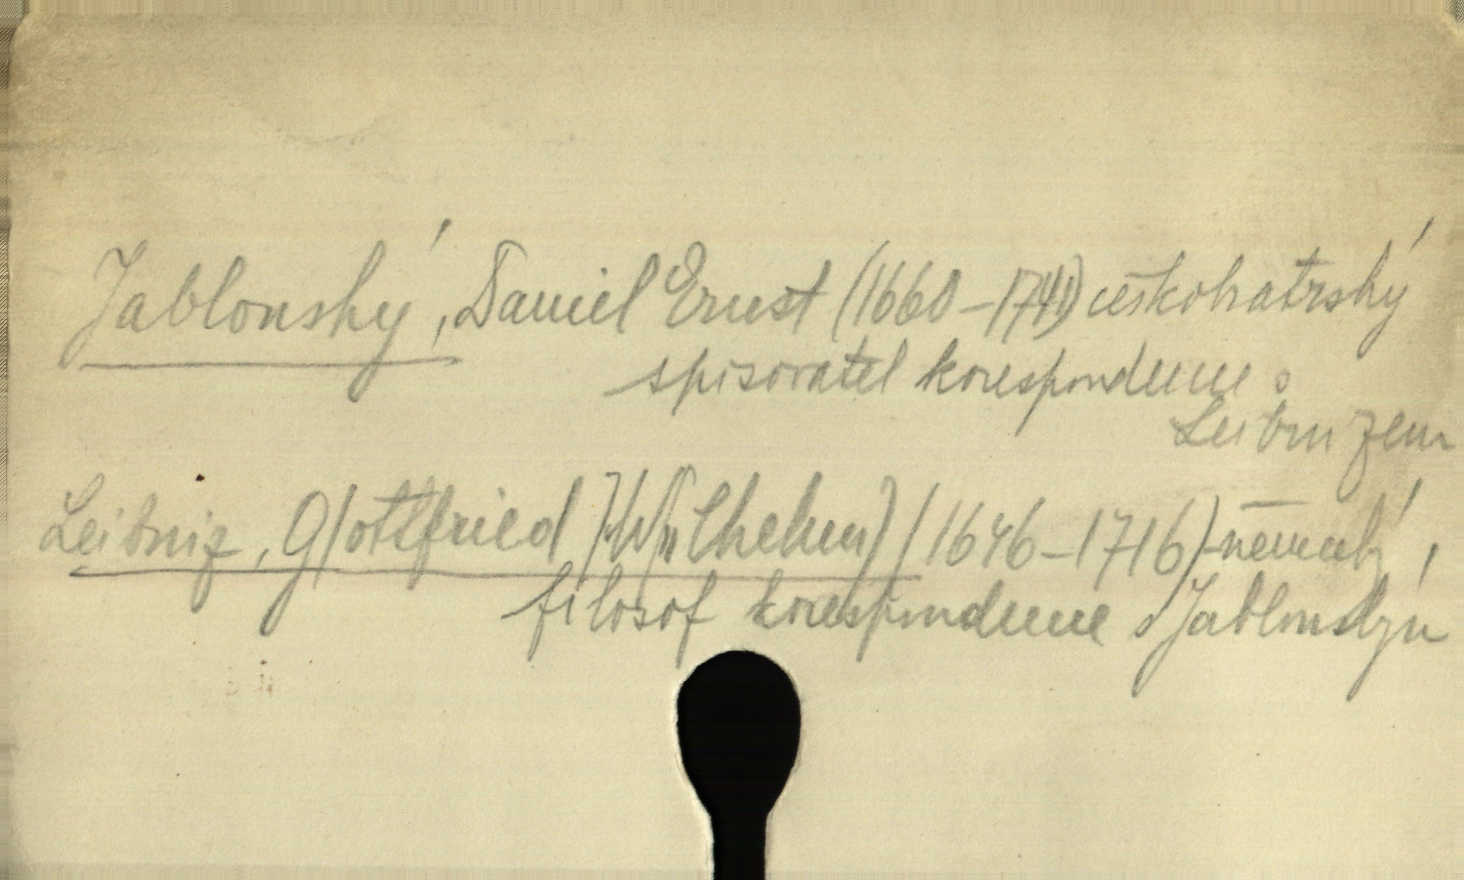 Jablonský, Daniel Ernst (1660-1741) českobratrský
spisovatel korespondence s
Leibnizem
Leibniz, G(ottfried) W(ilhelm) (1646-1716) - německý
filosof korespondence s Jablonským